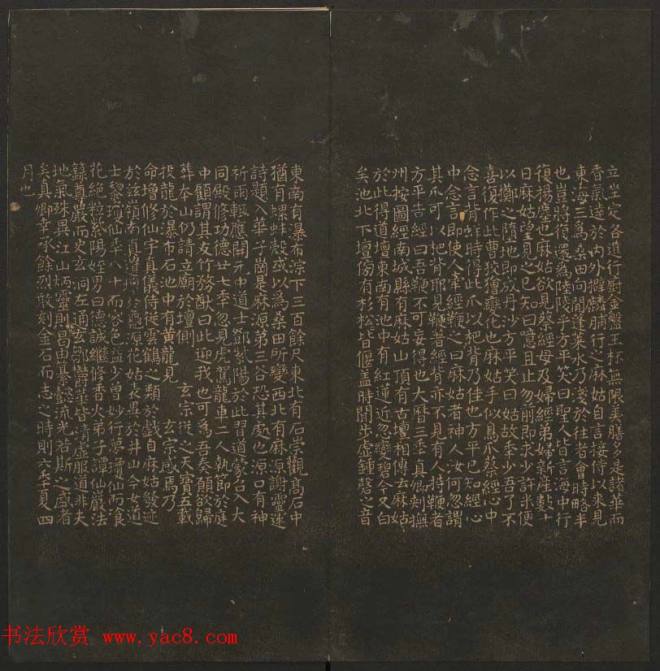 立坐定各進行廚金盤玉杯無限美膳多是諸華而
香氣達於內外擗麟脯行之麻姑自言接侍以來見
東海三為桑田向間蓬萊水乃淺於往者會時略半
也豈將復還為陸陵乎方平笑曰聖人皆言海中行
復揚塵也麻姑欲見蔡經母及婦經弟婦新產數十
日麻姑望見之已知曰噫且止勿前即求少許米便
以擲之墮地即成丹沙方平笑曰姑故年少吾了不
喜復作此曹狡獪變化也麻姑手似鳥爪蔡經心中
念言背蛘時得此爪以杷背乃佳也方平已知經心
中念言即使人牽經鞭之曰麻姑者神人汝何忽謂
其爪可以杷背耶見鞭著經背亦不見有人持鞭者
方平告經曰吾鞭不可妄得也大曆三年真卿刺撫
州按圖經南城縣有麻姑山頂有古壇相傳云麻姑
於此得道壇東南有池中有紅蓮近忽變碧今又白
矣池北下壇傍有杉松皆偃蓋時聞步虛鍾磬之音
東南有瀑布淙下三百餘尺東北有石崇觀高石中
猶有螺蚌殼或以為桑田所變西北有麻源謝靈運
詩題入華子崗是麻源第三谷恐其處也源口有神
祈雨輒應開元中道士鄧紫陽於此習道蒙召入大
同殿修功德廿七年忽見虎駕龍車二人執節於庭
中顧謂其友竹務猷曰此迎我也可為吾奏願欲歸
葬本山仍請立廟於壇側 玄宗從之天寶五載
投龍於瀑布石池中有黃龍見 玄宗感焉乃
命增修仙宇真儀侍從雲鶴之類於戲自麻姑發迹
於茲嶺南真遺壇於龜源花姑表異於井山今女道
士黎瓊仙年八十而容色益少曾妙行夢瓊仙而飡
花絕粒紫陽姪男曰德誠繼修香火弟子譚仙巖法
籙尊嚴而史玄洞左通玄鄒鬱華皆清虛服道非夫
地氣殊異江山炳靈則曷由纂懿流光若斯之盛者
矣真卿幸承餘烈敢刻金石而志之時則六年夏四
月也
书法欣赏 www.yac8.com